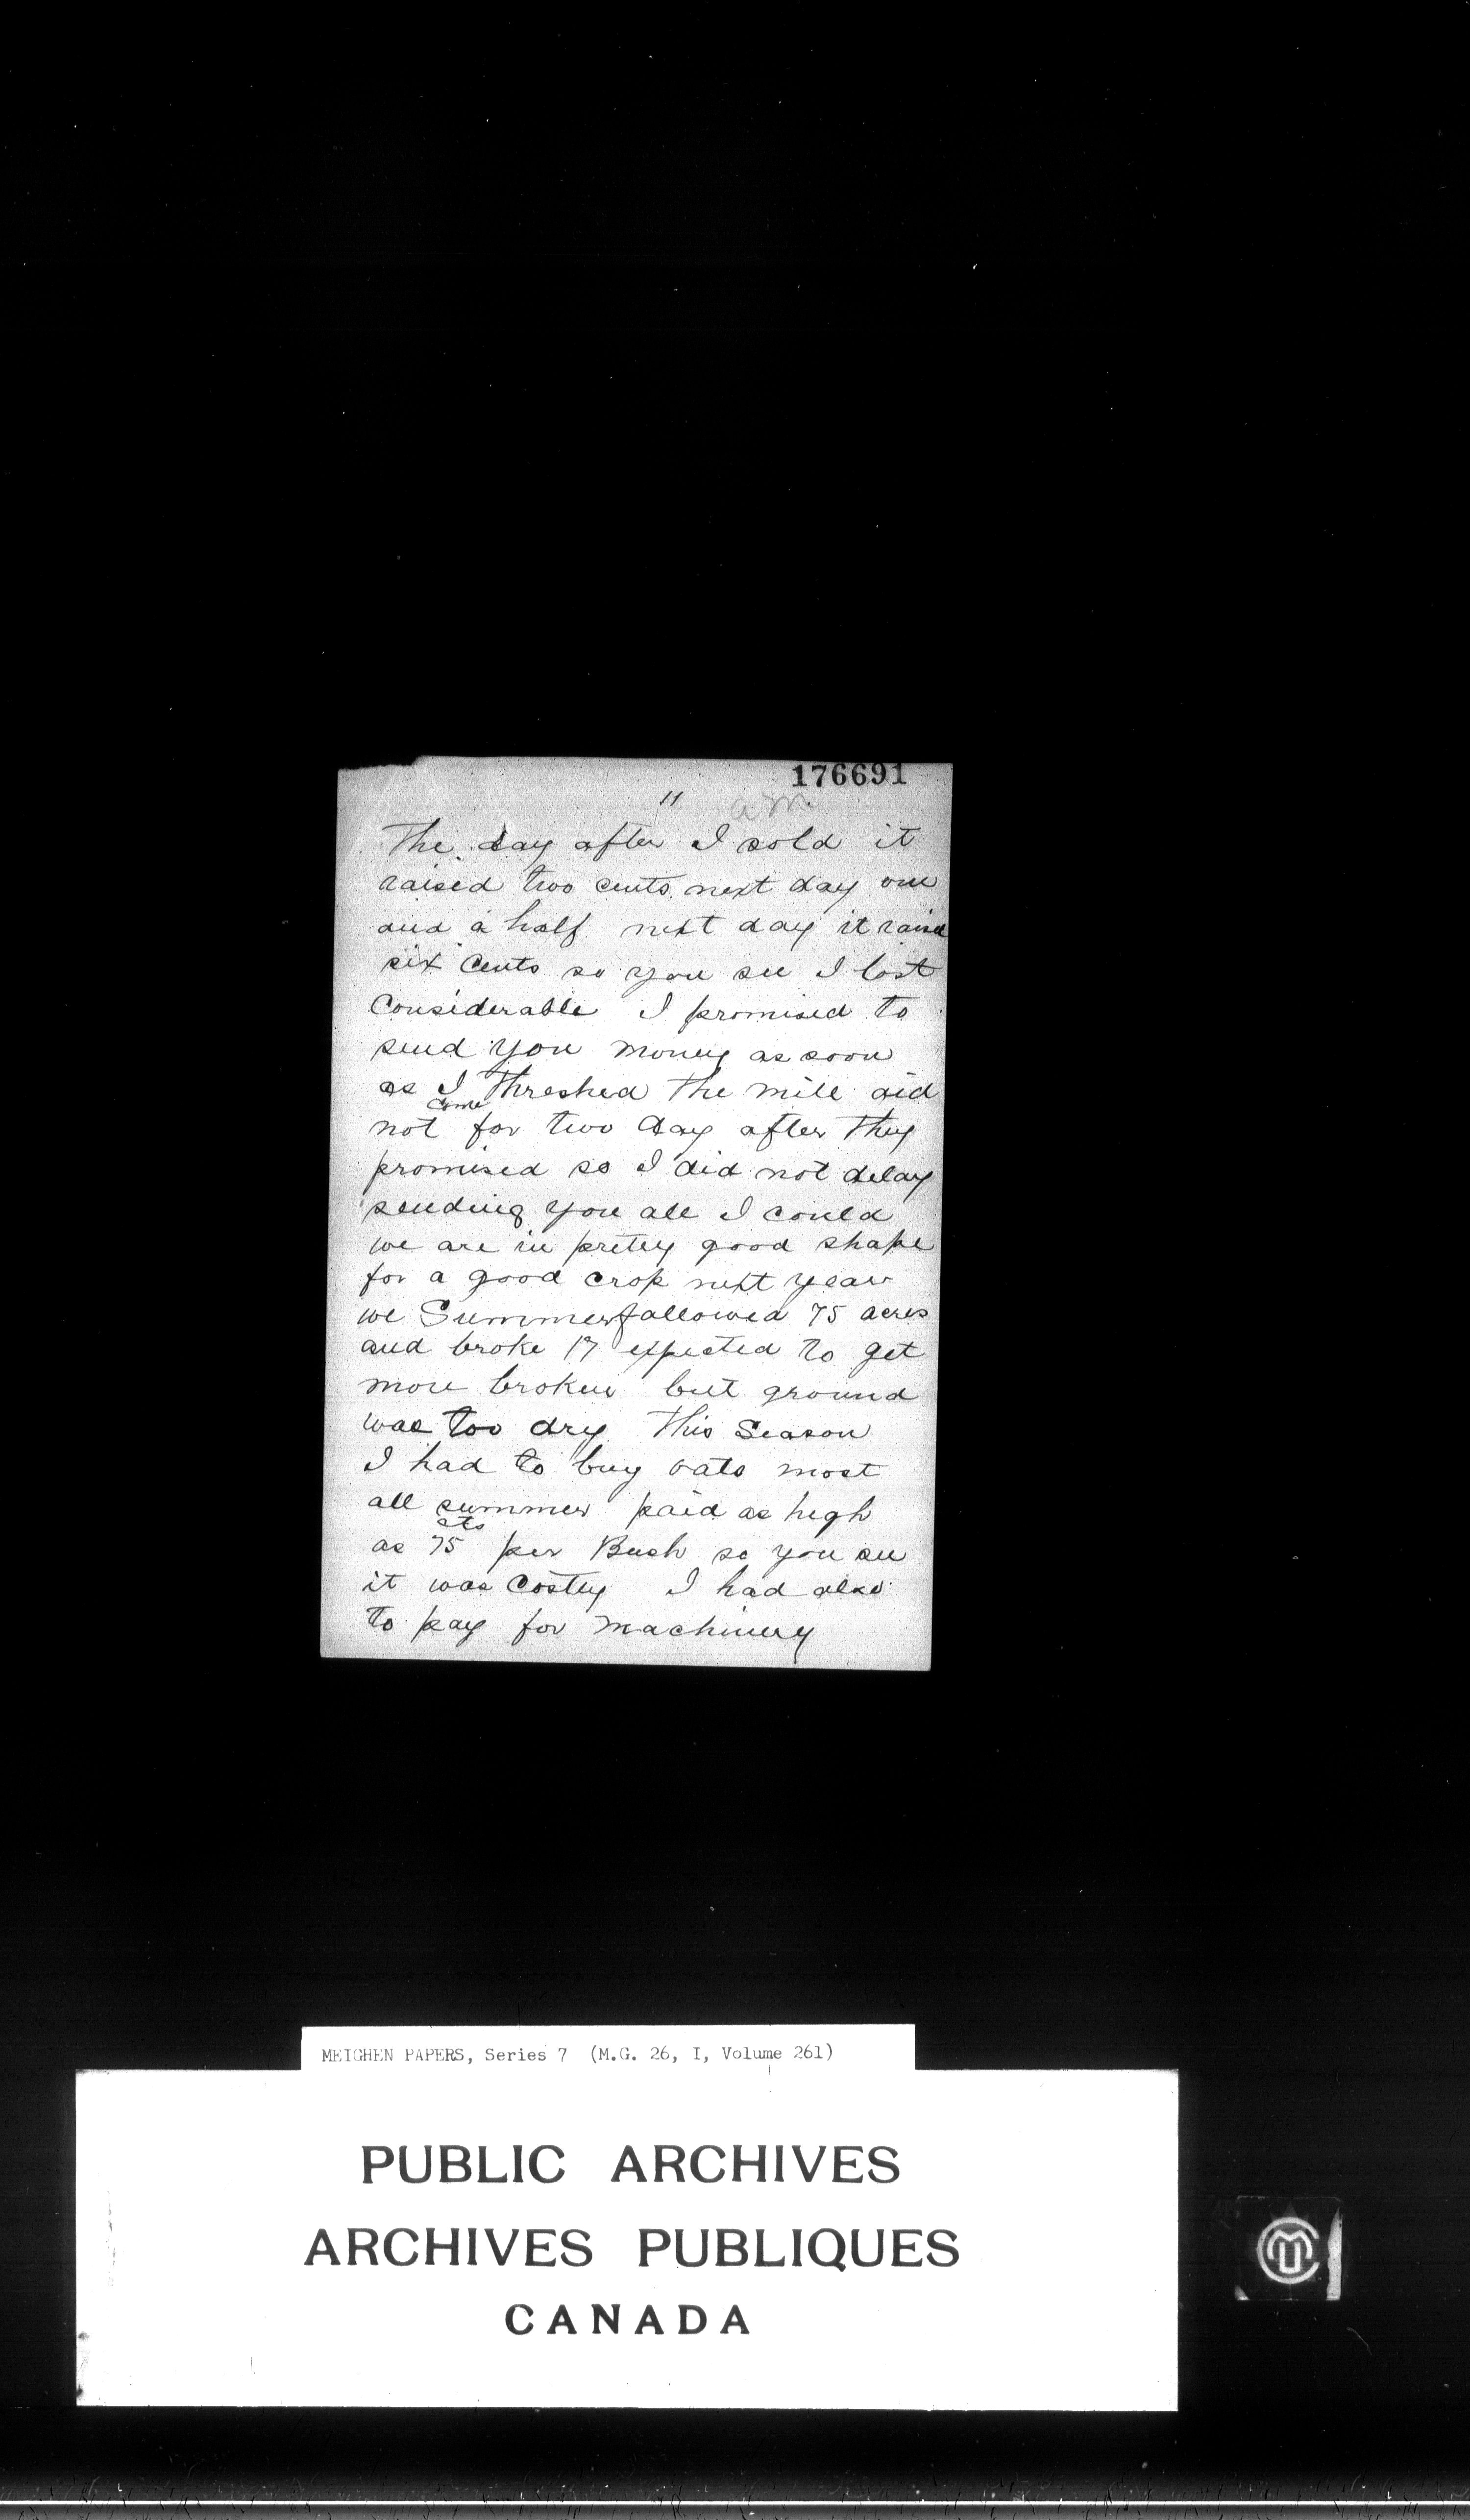 176691
11
a.m.
The day after I sold it
raised two cents next day one
and a half next day it raised
six cents so you see I lost
Considerable I promised to
send you money as soon
as I threshed the mill did
not come for two day after they
promised so I did not delay
sending you all I could
we are in pretey good shape
for a good crop next year
we Summerfallowed 75 acres
and broke 17 expected to get
more broken but ground
was too dry this Season
I had to buy oats most
all summer paid as high
as 75 cts per Bush so you see
it was Costly I had also
to pay for machinery
MEIGHEN PAPERS, Series 7 (M.G. 26, I, Volume 261)
PUBLIC ARCHIVES
ARCHIVES PUBLIQUES
CANADA